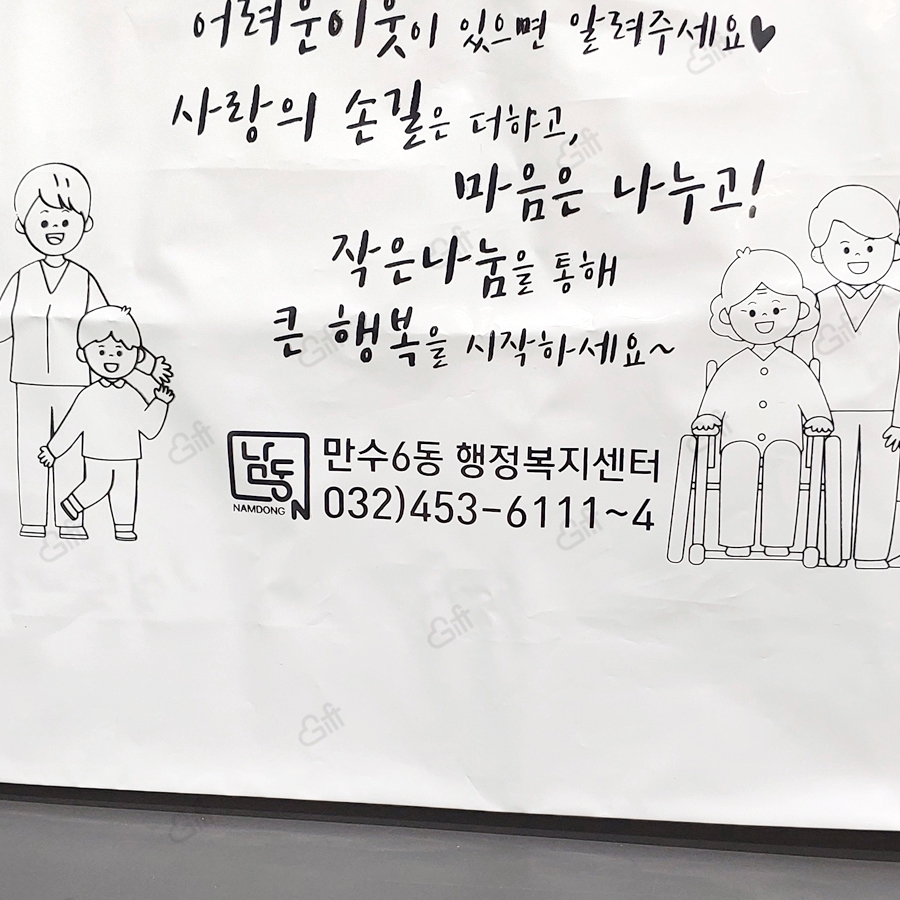 어려운이웃이 있으면 알려주세요♥
사랑의 손길은 더하고,
마음은 나누고!
작은나눔을 통해
큰 행복을 시작하세요~
남동
NAMDONG
만수6동 행정복지센터
032)453-6111~4
Gift
Gift
Gift
Gift